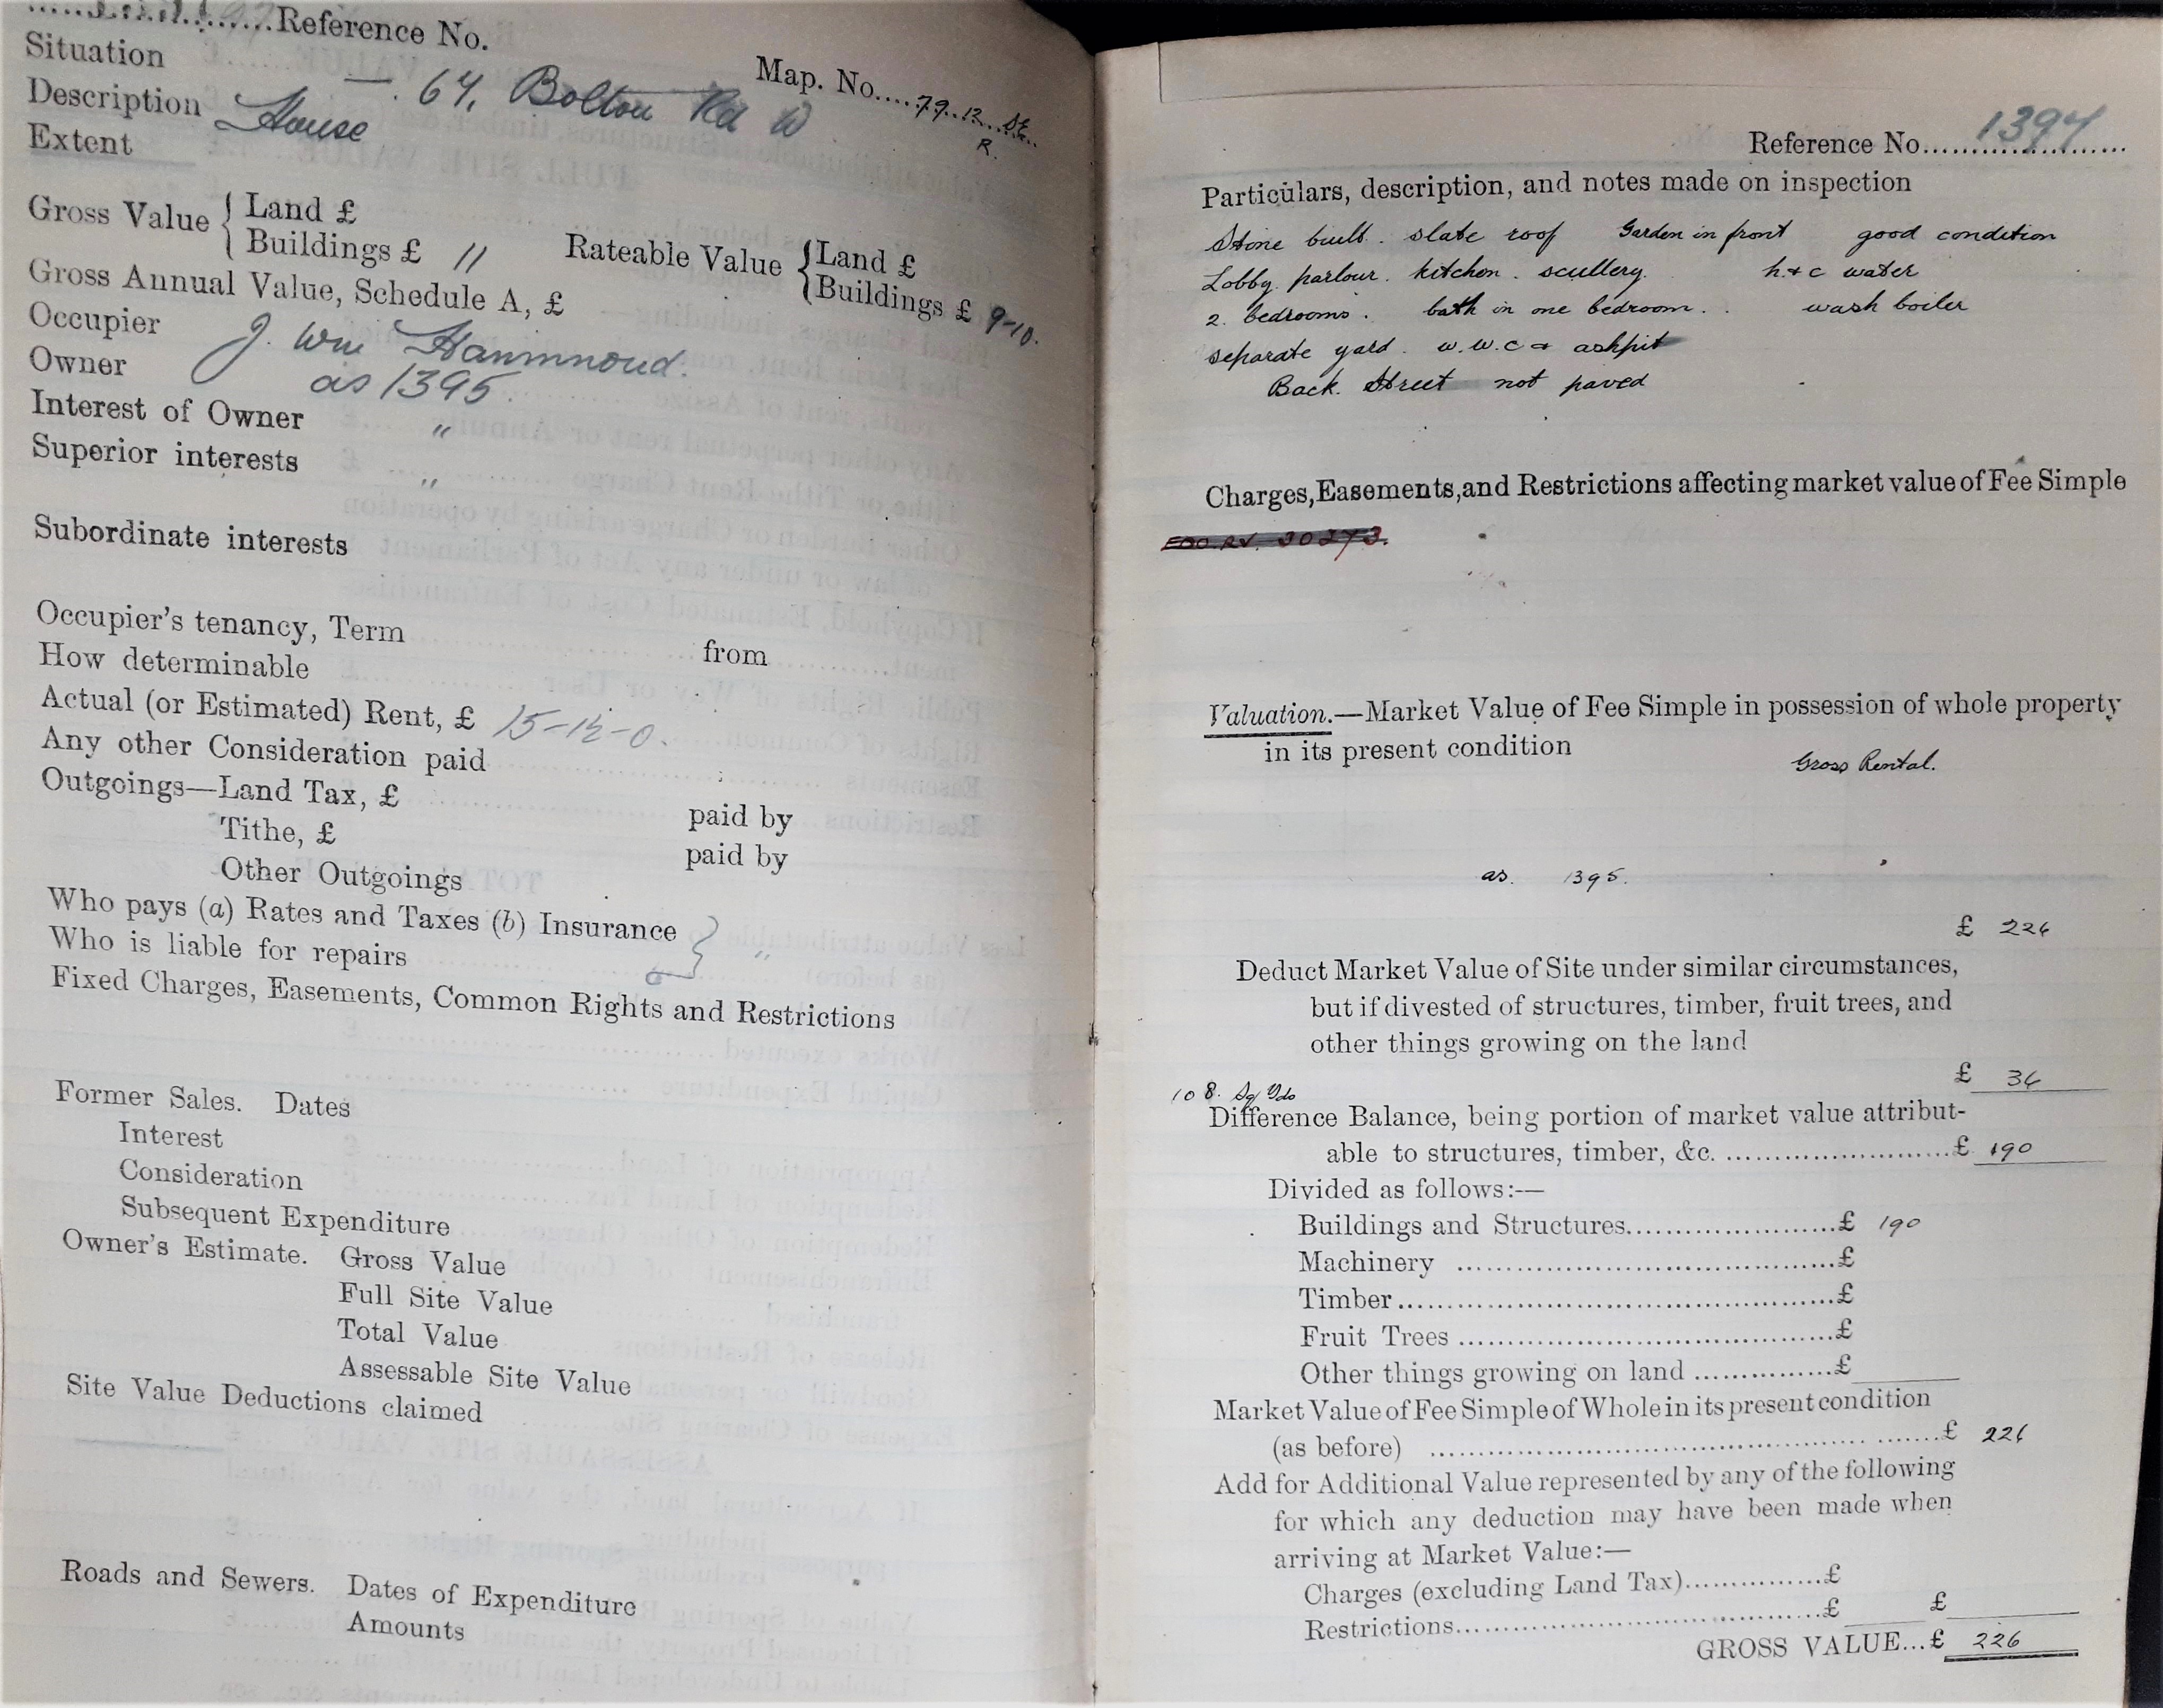 Reference No.
Situation
Map. No. 79.12. SE.
R.
— . 64, Bolton Rd W
Description House
Extent
Gross Value { Land £
Buildings £ 11
Rateable Value { Land £
Buildings £ 9-10.
Gross Annual Value, Schedule A, £
Occupier J. Wm Hammond.
Owner as 1395.
Interest of Owner "
Superior interests "
Subordinate interests
Occupier's tenancy, Term
from
How determinable
Actual (or Estimated) Rent, £ 15-12-0.
Any other Consideration paid
Outgoings—Land Tax, £
paid by
Tithe, £
paid by
Other Outgoings
Who pays (a) Rates and Taxes (b) Insurance
Who is liable for repairs } "
Fixed Charges, Easements, Common Rights and Restrictions
Former Sales. Dates
Interest
Consideration
Subsequent Expenditure
Owner's Estimate. Gross Value
Full Site Value
Total Value
Assessable Site Value
Site Value Deductions claimed
Roads and Sewers. Dates of Expenditure
Amounts
Reference No. 1394
Particulars, description, and notes made on inspection
Stone built. slate roof Garden in front good condition
Lobby. parlour. kitchen. scullery. h. & c water
2. bedrooms. bath in one bedroom. . wash boiler
separate yard. w.w.c & ashpit
Back. Street not paved
Charges, Easements, and Restrictions affecting market value of Fee Simple
Valuation.—Market Value of Fee Simple in possession of whole property
in its present condition
Gross Rental.
as. 1395.
£ 226
Deduct Market Value of Site under similar circumstances,
but if divested of structures, timber, fruit trees, and
other things growing on the land
£ 36
108. Sq Yds
Difference Balance, being portion of market value attribut-
able to structures, timber, &c. ........................£ 190
Divided as follows:—
Buildings and Structures......................£ 190
Machinery ......................................£
Timber............................................£
Fruit Trees ......................................£
Other things growing on land ..............£
Market Value of Fee Simple of Whole in its present condition
(as before) ....................................................£ 226
Add for Additional Value represented by any of the following
for which any deduction may have been made when
arriving at Market Value:—
Charges (excluding Land Tax)..............£
Restrictions.....................................£ £
GROSS VALUE...£ 226